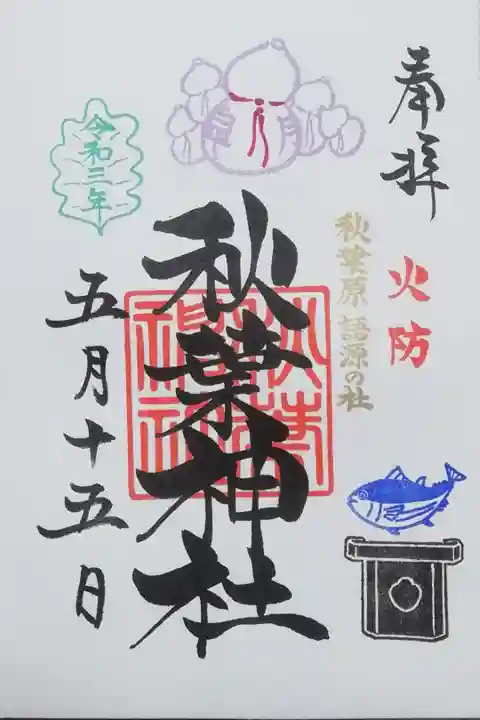 奉拝
火防
秋葉原 語源の社
秋葉神社
秋葉
神社
令和三年
五月十五日